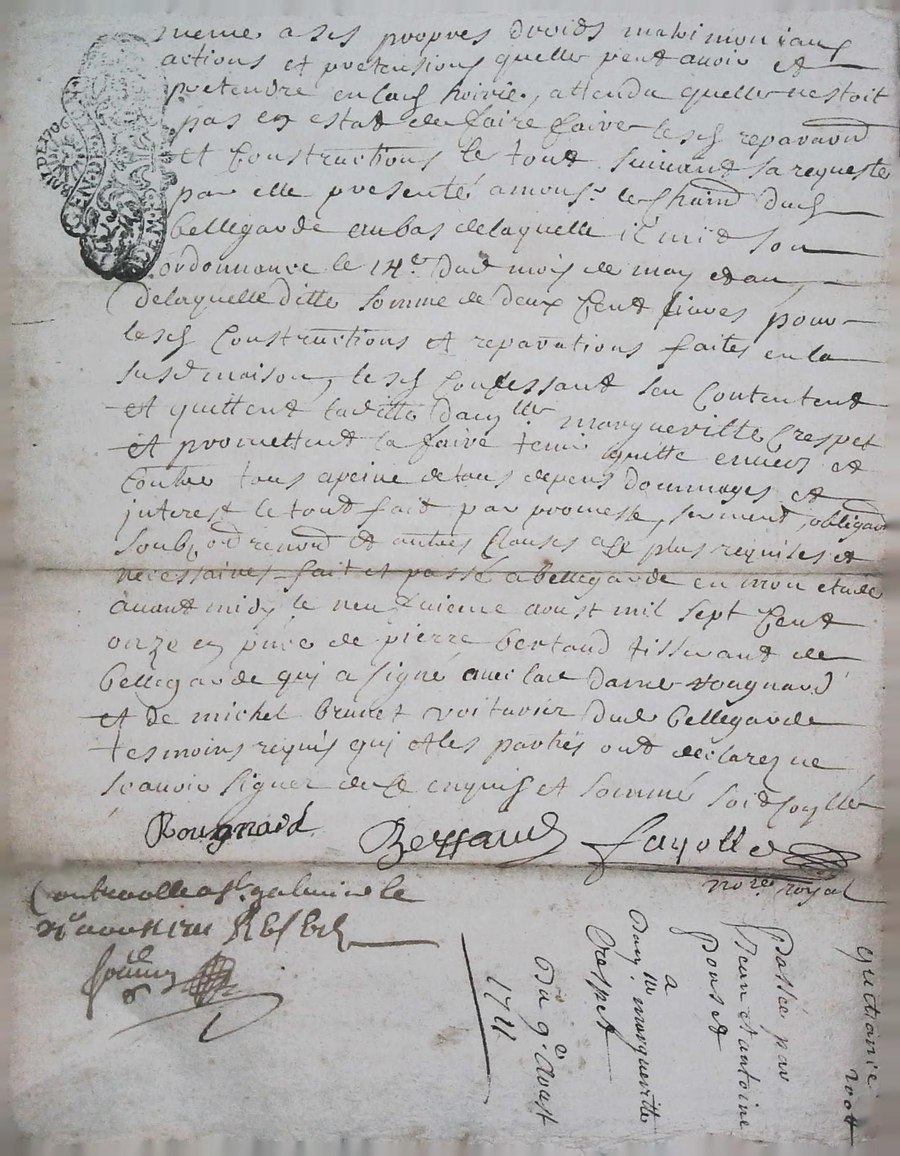 meme a ses propres droids matrimoniaux
actions et pretensions quelle peut avoir et
pretendre en lad hoirie, attendu quelle nestoit
pas en estat de faire faire lesd reparaons
et Constructions le tout suivant sa requeste
par elle presenté a monsr le dud
bellegarde au bas delaquelle il mit son
ordonnance le 14e dud mois de may
delaquelle ditte somme de deux Cent livres pour
lesd Constructions et reparations faites en la
susd maison, lesd Confessant sen Contentent
et quittent laditte damlle morgueville Crespet
et promettent la faire tenir quitte envers et
Contre tous a peine de tous depens dommages et
interest le tout fait par promesse, serment, obligaon
soubz renond et autres Clauses a Ce plus requises et
necessaires fait et passé a bellegarde en mon etude
avant midy le neufuieme aoust mil sept Cent
onze en pnce de pierre bertaud tisserant de
bellegarde qui a signé avec lad dame rougnard
et de michel brunet voiturier dud bellegarde
tesmoins requis qui et les parties ont declarez ne
scavoir signer de Ce enquis et sommé soidCoyller
Rougnard
Fayolle
nore royal
Controolle a st galmier le
aoust 1711
quitance
Passée par
Jean et antoine
Ponset
a
damlle morgueville
Crespet
du 9e aoust
1711
GEN. DE